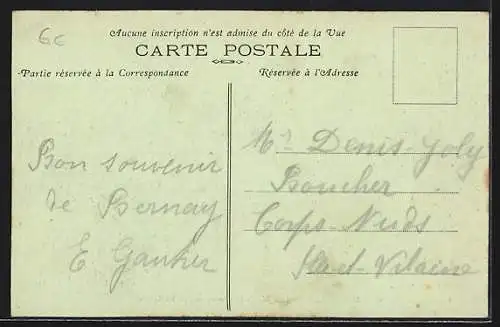 6€
Aucune inscription n'est admise du côté de la Vue
CARTE POSTALE
Partie réservée à la Correspondance
Réservée à l'Adresse
Bon souvenir
de Bernay
E Gautier
Mr Denis-Joly
Boucher
Corps-Nuds
Ille et-Vilaine